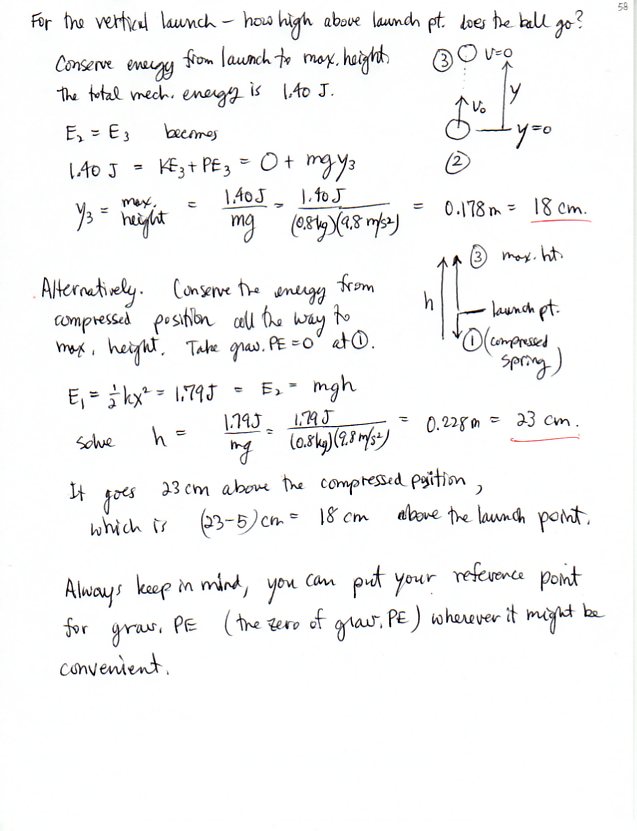 58
For the vertical launch – how high above launch pt. does the ball go?
Conserve energy from launch to max. height.
The total mech. energy is 1.40 J.
③ v=0
y
v₀
y=0
②
E₂ = E₃ becomes
1.40 J = KE₃ + PE₃ = 0 + mgy₃
y₃ = max. height = 1.40J / mg = 1.40 J / (0.8kg)(9.8 m/s²) = 0.178m = 18 cm.
Alternatively. Conserve the energy from
compressed position all the way to
max. height. Take grav. PE = 0 at ①.
③ max. ht.
h
launch pt.
① (compressed spring)
E₁ = ½kx² = 1.79J = E₂ = mgh
solve h = 1.79J / mg = 1.79 J / (0.8kg)(9.8 m/s²) = 0.228m = 23 cm.
It goes 23 cm above the compressed position,
which is (23-5)cm = 18 cm above the launch point.
Always keep in mind, you can put your reference point
for grav. PE (the zero of grav. PE) wherever it might be
convenient.